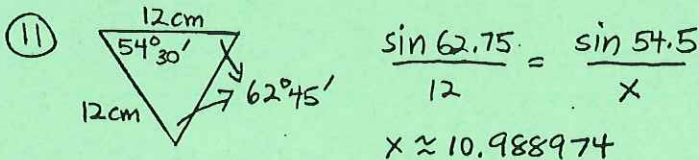 11
12cm
54°30′
12cm
62°45′
sin 62.75 / 12 = sin 54.5 / x
x ≈ 10.988974